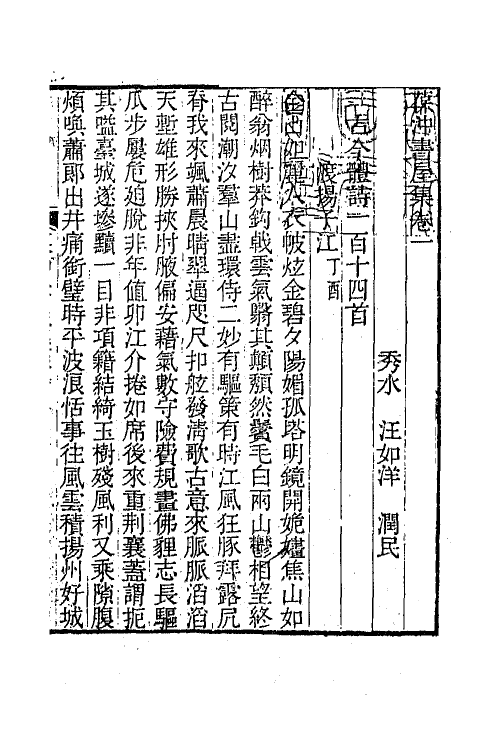 葆沖書屋集卷一
秀水　汪如洋　潤民
古今體詩一百十四首
渡揚子江丁酉
金山如麗人衣帔炫金碧夕陽媚孤塔明鏡開婉嫿焦山如
醉翁烟樹莽鉤戟雲氣翳其顛頽然鬢毛白兩山鬱相望終
古閱潮汐羣山盡環侍二妙有驅策有時江風狂豚拜露尻
脊我來颯蕭晨晴翠逼咫尺扣舷發清歌古意來脈脈滔滔
天塹雄形勝挾肘腋偏安藉氣數守險費規畫佛貍志長驅
瓜步屢危廹脫非年值卯江介捲如席後來重荆襄蓋謂扼
其嗌臺城遂慘黷一目非項籍結綺玉樹殘風利又乘隙腹
煩喚蕭郎出井痛銜璧時平波浪恬事往風雲積揚州好城